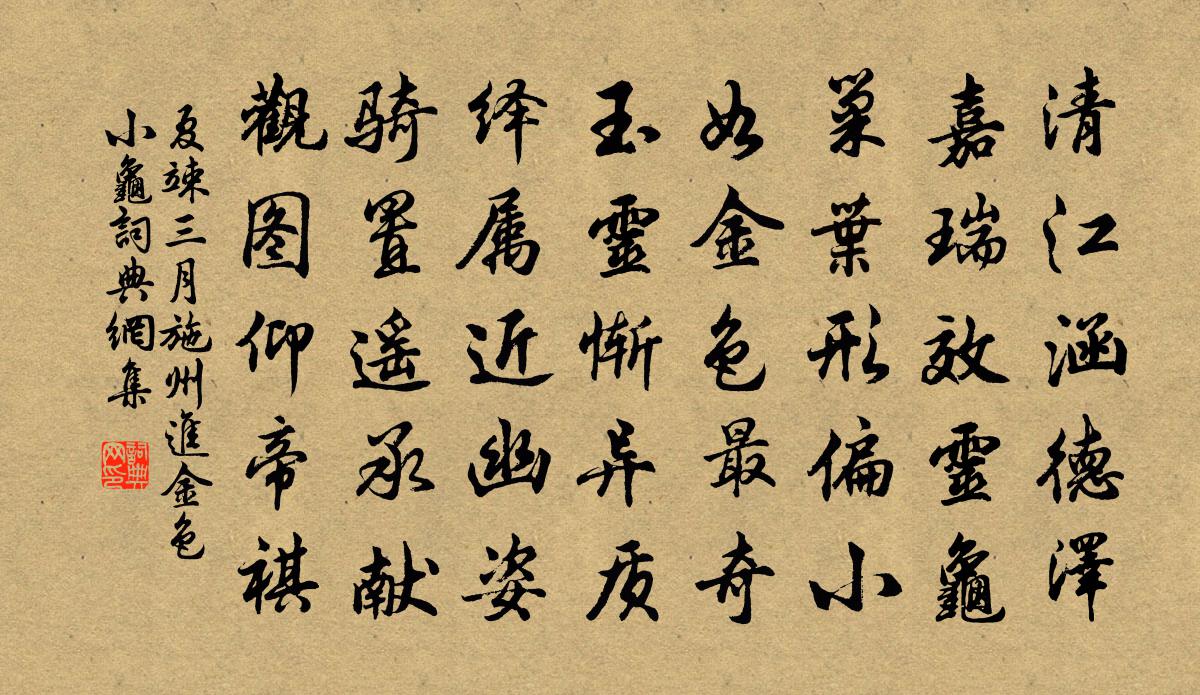 清江涵德澤
嘉瑞效靈龜
巢葉形偏小
如金色最奇
玉靈惭异质
绎属近幽姿
骑置遥承献
觀图仰帝祺
夏竦三月施州進金色
小龜詞典網集
詞典
网印